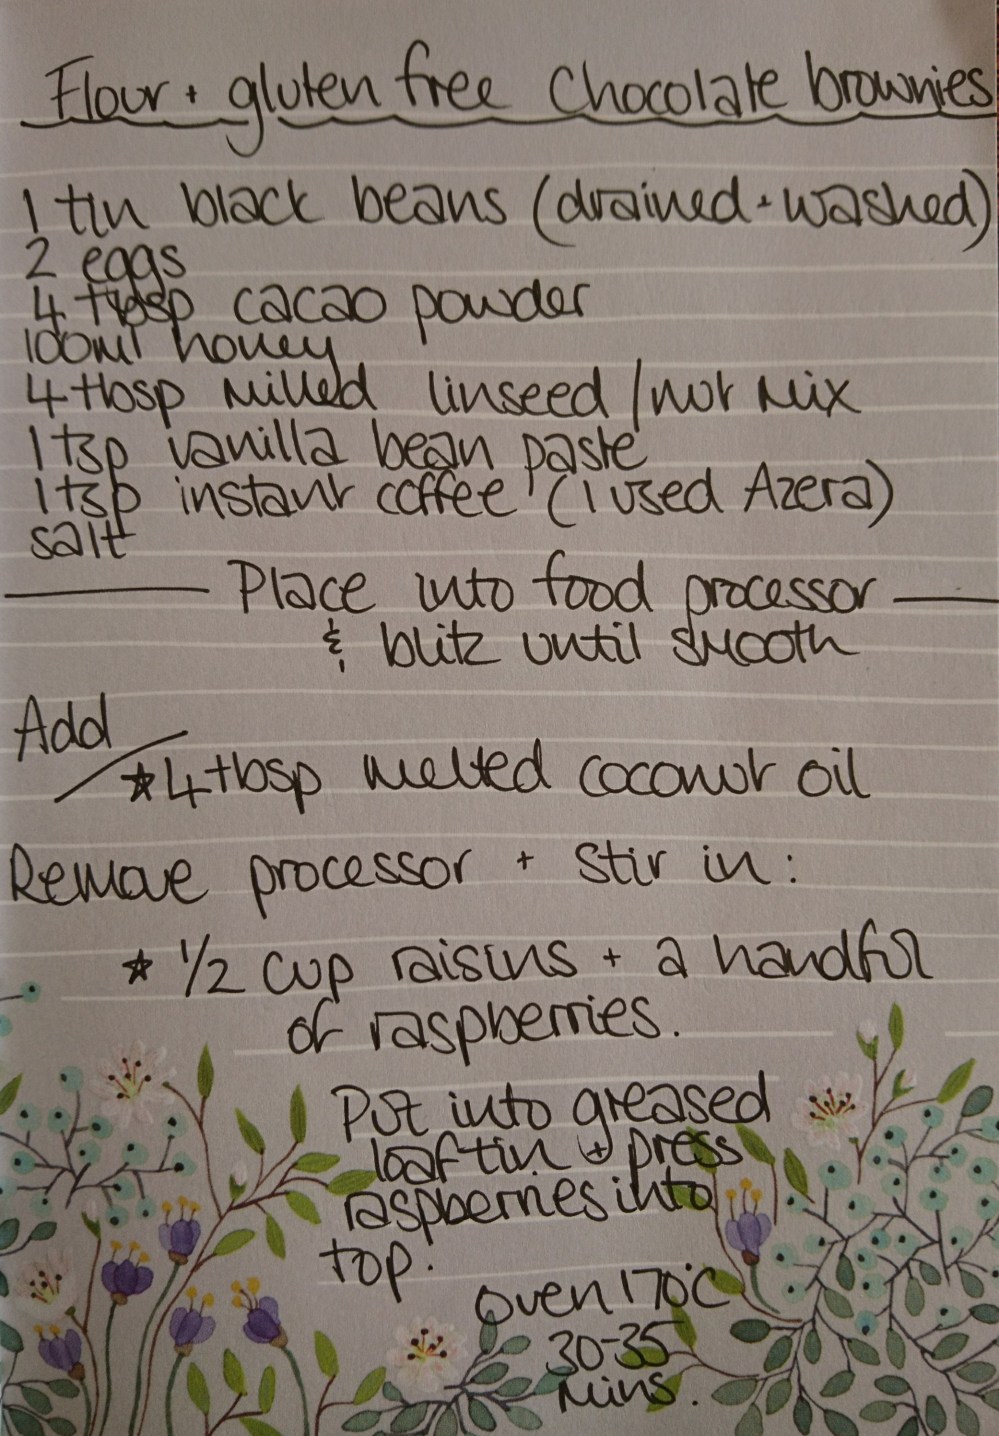 Flour + gluten free Chocolate brownies
1 tin black beans (drained + washed)
2 eggs
4 tbsp cacao powder
100ml honey
4 tbsp milled linseed / nut mix
1 tsp vanilla bean paste
1 tsp instant coffee (I used Azera)
salt
Place into food processor
& blitz until smooth
Add
★ 4 tbsp melted coconut oil
Remove processor + stir in:
★ 1/2 cup raisins + a handful
of raspberries.
Put into greased
loaf tin + press
raspberries into
top.
oven 170°C
30-35
mins.